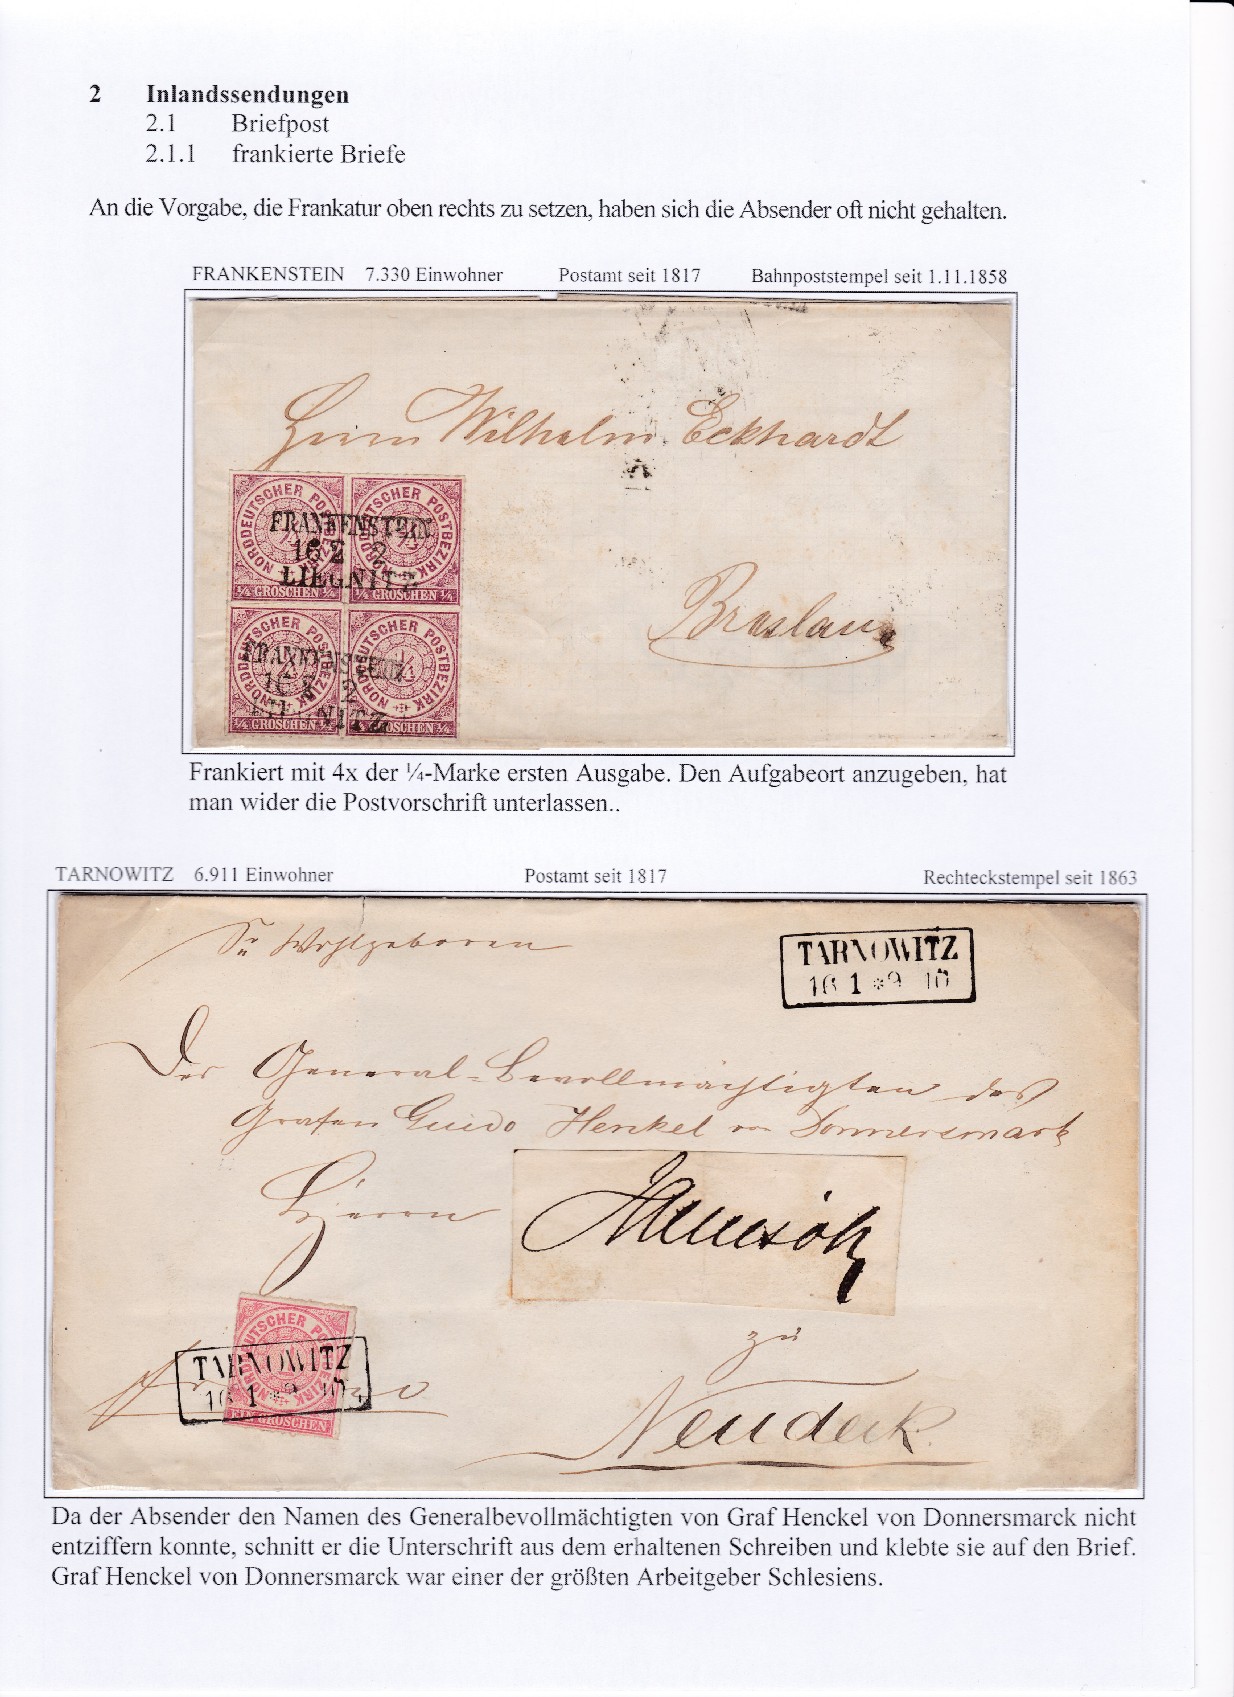 2 Inlandssendungen
2.1 Briefpost
2.1.1 frankierte Briefe
An die Vorgabe, die Frankatur oben rechts zu setzen, haben sich die Absender oft nicht gehalten.
FRANKENSTEIN 7.330 Einwohner Postamt seit 1817 Bahnpoststempel seit 1.11.1858
Herrn Wilhelm Eckhardt
NORDDEUTSCHER POSTBEZIRK
NORDDEUTSCHER POSTBEZIRK
FRANKENSTEIN
16 2 2
LIEGNITZ
¼ GROSCHEN ¼
¼ GROSCHEN ¼
Breslau
NORDDEUTSCHER POSTBEZIRK
NORDDEUTSCHER POSTBEZIRK
FRANKENSTEIN
16 2 2
LIEGNITZ
¼ GROSCHEN ¼
¼ GROSCHEN ¼
Frankiert mit 4x der ¼-Marke ersten Ausgabe. Den Aufgabeort anzugeben, hat
man wider die Postvorschrift unterlassen..
TARNOWITZ 6.911 Einwohner Postamt seit 1817 Rechteckstempel seit 1863
Sr Wohlgeboren
TARNOWITZ
16 1 *9 10
General-Bevollmächtigten des
Grafen Guido Henkel von Donnersmark
Herrn
NORDDEUTSCHER POSTBEZIRK
TARNOWITZ
16 1 *9 10
EIN GROSCHEN
zu
Neudeck.
Da der Absender den Namen des Generalbevollmächtigten von Graf Henckel von Donnersmarck nicht
entziffern konnte, schnitt er die Unterschrift aus dem erhaltenen Schreiben und klebte sie auf den Brief.
Graf Henckel von Donnersmarck war einer der größten Arbeitgeber Schlesiens.